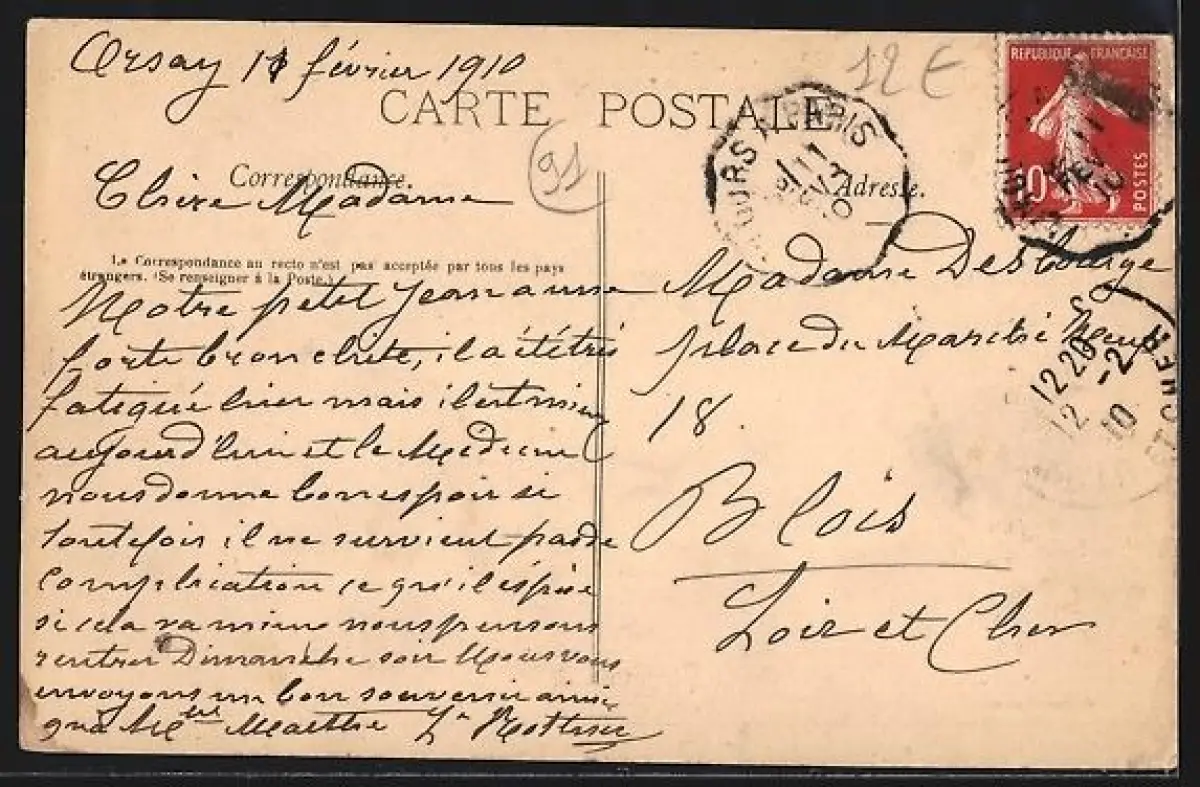 Orsay 11 février 1910
12 €
CARTE POSTALE
91
Correspondance.
Adresse.
Chère Madame
La Correspondance au recto n'est pas acceptée par tous les pays
étrangers. (Se renseigner à la Poste.)
Notre petit Jean a une
forte bronchite, il a été très
fatigué hier mais il est mieux
aujourd'hui et le Médecin
nous donne bon espoir si
toutefois il ne survient pas de
complication ce qu'il espère
si cela va mieux nous pensons
rentrer Dimanche soir Nous vous
envoyons un bon souvenir ainsi
qu'à Mlle Marthe
Madame Desbourge
place du Marché Neuf
18.
Blois
Loir et Cher
REPUBLIQUE FRANÇAISE
10
POSTES
TOURS A PARIS
11
FEV
10
11
FEV
10
12 20
12 -2
10
ET CHER